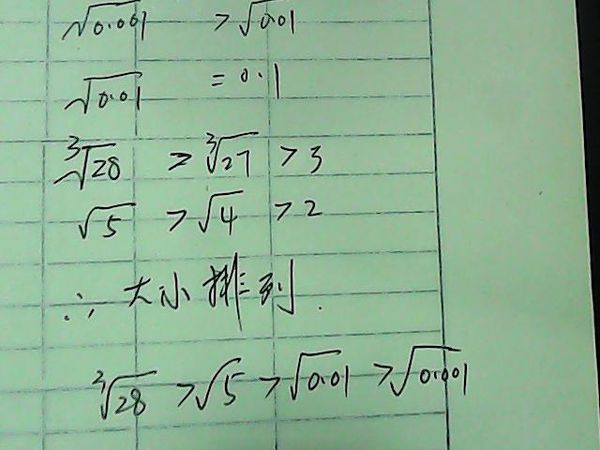 √0.001 > √0.01
√0.01 = 0.1
∛28 > ∛27 > 3
√5 > √4 > 2
∴ 大小排列.
∛28 > √5 > √0.01 > √0.001